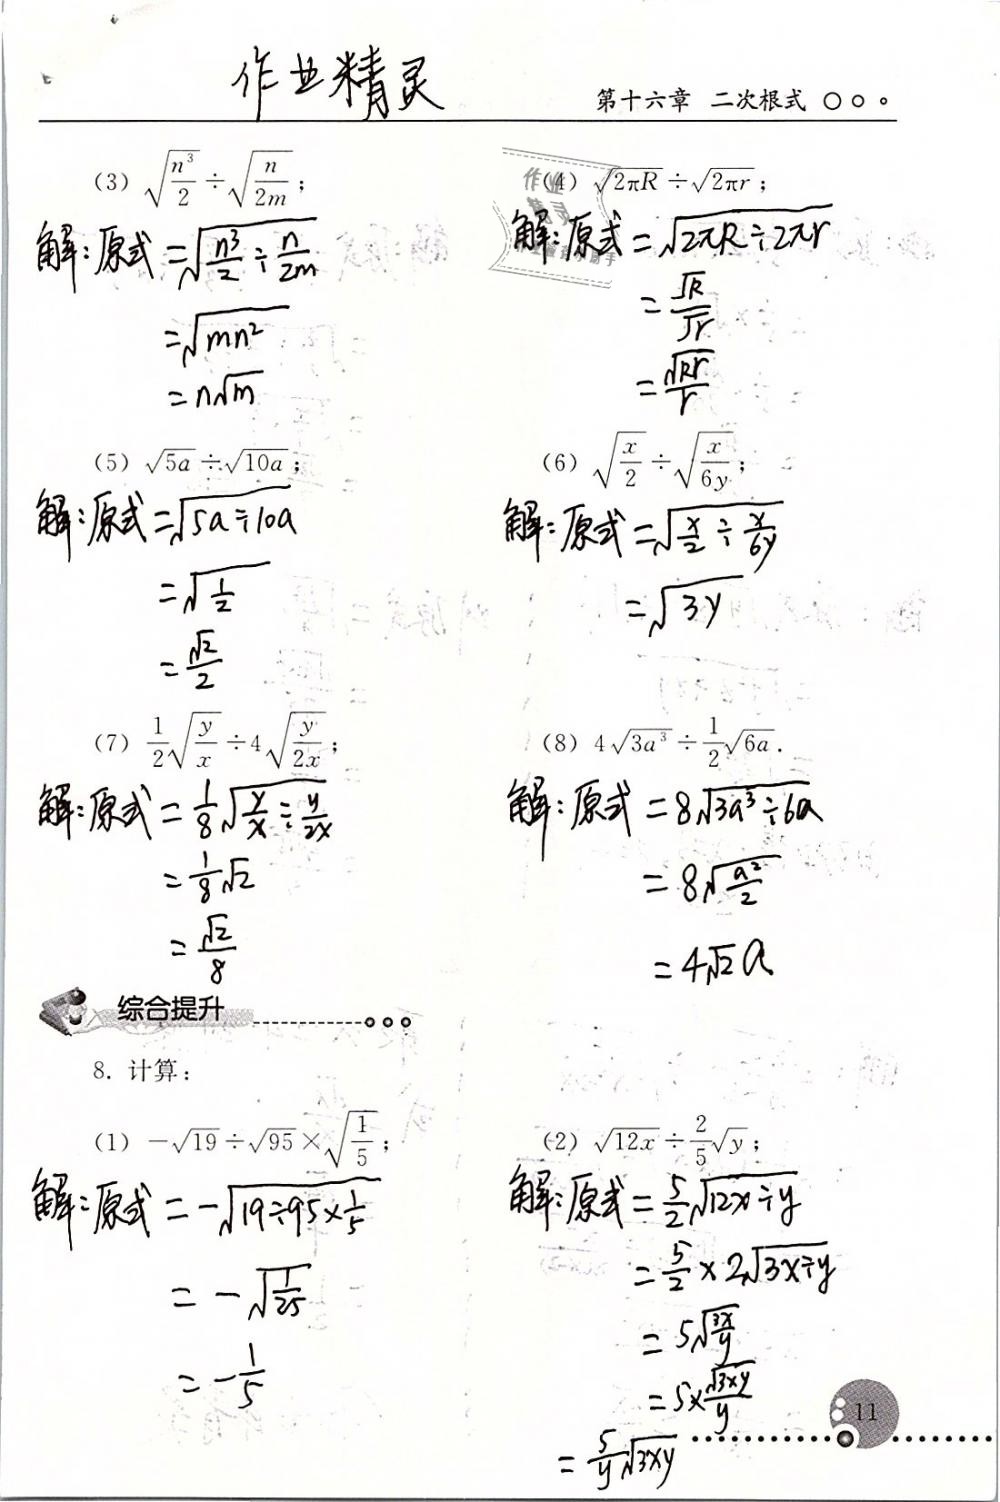 作业精灵
第十六章 二次根式
(3) √(n³/2) ÷ √(n/2m);
解:原式 = √(n³/2 ÷ n/2m)
= √(mn²)
= n√m
(4) √(2πR) ÷ √(2πr);
解:原式 = √(2πR÷2πr)
= √R/√r
= √(Rr)/r
(5) √(5a) ÷ √(10a);
解:原式 = √(5a÷10a)
= √(1/2)
= √2/2
(6) √(x/2) ÷ √(x/6y);
解:原式 = √(x/2 ÷ x/6y)
= √(3y)
(7) 1/2 √(y/x) ÷ 4√(y/2x);
解:原式 = 1/8 √(y/x ÷ y/2x)
= 1/8 √2
= √2/8
(8) 4√(3a³) ÷ 1/2 √(6a).
解:原式 = 8√(3a³÷6a)
= 8√(a²/2)
= 4√2 a
综合提升
8. 计算:
(1) -√19 ÷ √95 × √(1/5);
解:原式 = -√(19÷95×1/5)
= -√(1/25)
= -1/5
(2) √(12x) ÷ 2/5 √y;
解:原式 = 5/2 √(12x÷y)
= 5/2 × 2√(3x÷y)
= 5√(3x/y)
= 5×√(3xy)/y
= 5/y √(3xy)
11